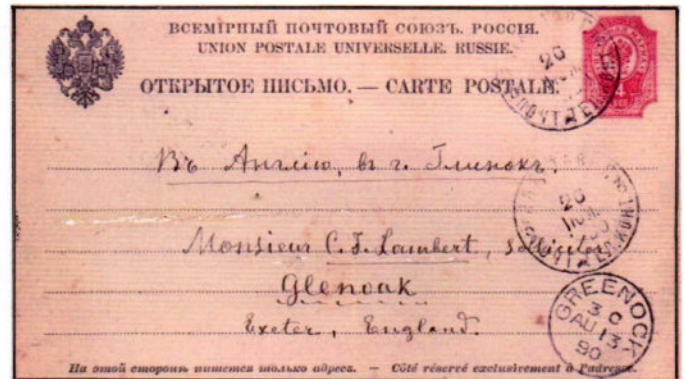 ВСЕМІРНЫЙ ПОЧТОВЫЙ СОЮЗЪ. РОССІЯ.
UNION POSTALE UNIVERSELLE. RUSSIE.
ОТКРЫТОЕ ПИСЬМО. — CARTE POSTALE.
4
26
Въ Англію, въ г. Глинокъ.
26
Monsieur C. T. Lambert, Sollicitor
Glenoak
Exeter, England.
GREENOCK
3 C
AU 13
90
На этой сторонѣ пишется только адресъ. — Côté réservé exclusivement à l'adresse.